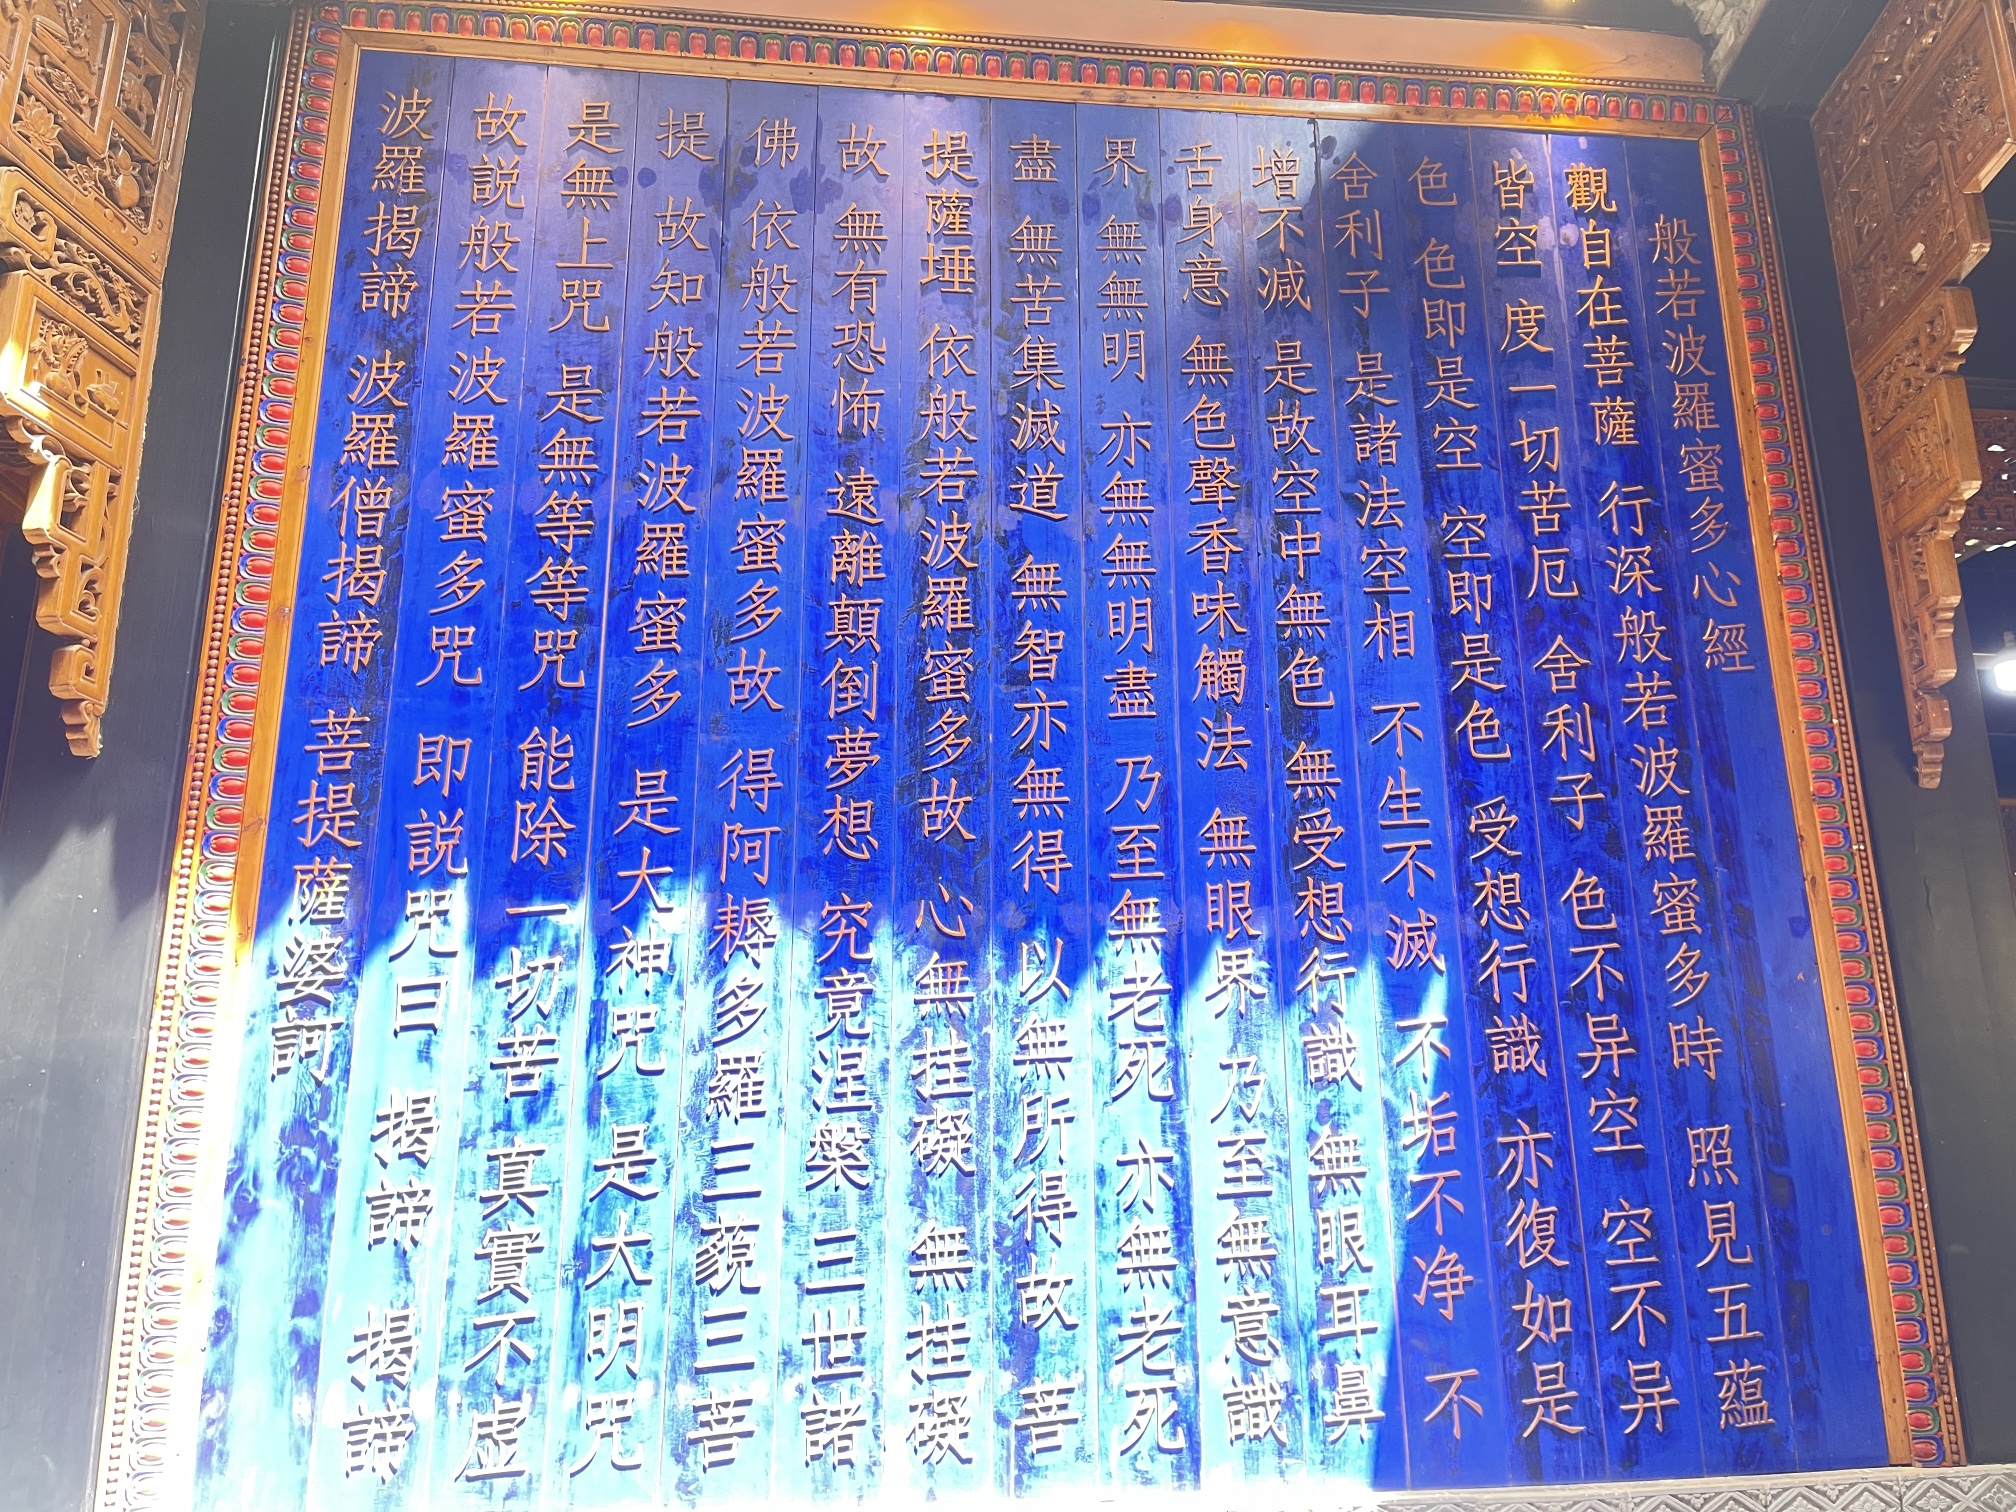 般若波羅蜜多心經
觀自在菩薩 行深般若波羅蜜多時 照見五蘊
皆空 度一切苦厄 舍利子 色不异空 空不异
色 色即是空 空即是色 受想行識 亦復如是
舍利子 是諸法空相 不生不滅 不垢不净 不
增不減 是故空中無色 無受想行識 無眼耳鼻
舌身意 無色聲香味觸法 無眼界 乃至無意識
界 無無明 亦無無明盡 乃至無老死 亦無老死
盡 無苦集滅道 無智亦無得 以無所得故 菩
提薩埵 依般若波羅蜜多故 心無挂礙 無挂礙
故 無有恐怖 遠離顛倒夢想 究竟涅槃 三世諸
佛 依般若波羅蜜多故 得阿耨多羅三藐三菩
提 故知般若波羅蜜多 是大神咒 是大明咒
是無上咒 是無等等咒 能除一切苦 真實不虛
故説般若波羅蜜多咒 即説咒曰 揭諦 揭諦
波羅揭諦 波羅僧揭諦 菩提薩婆訶